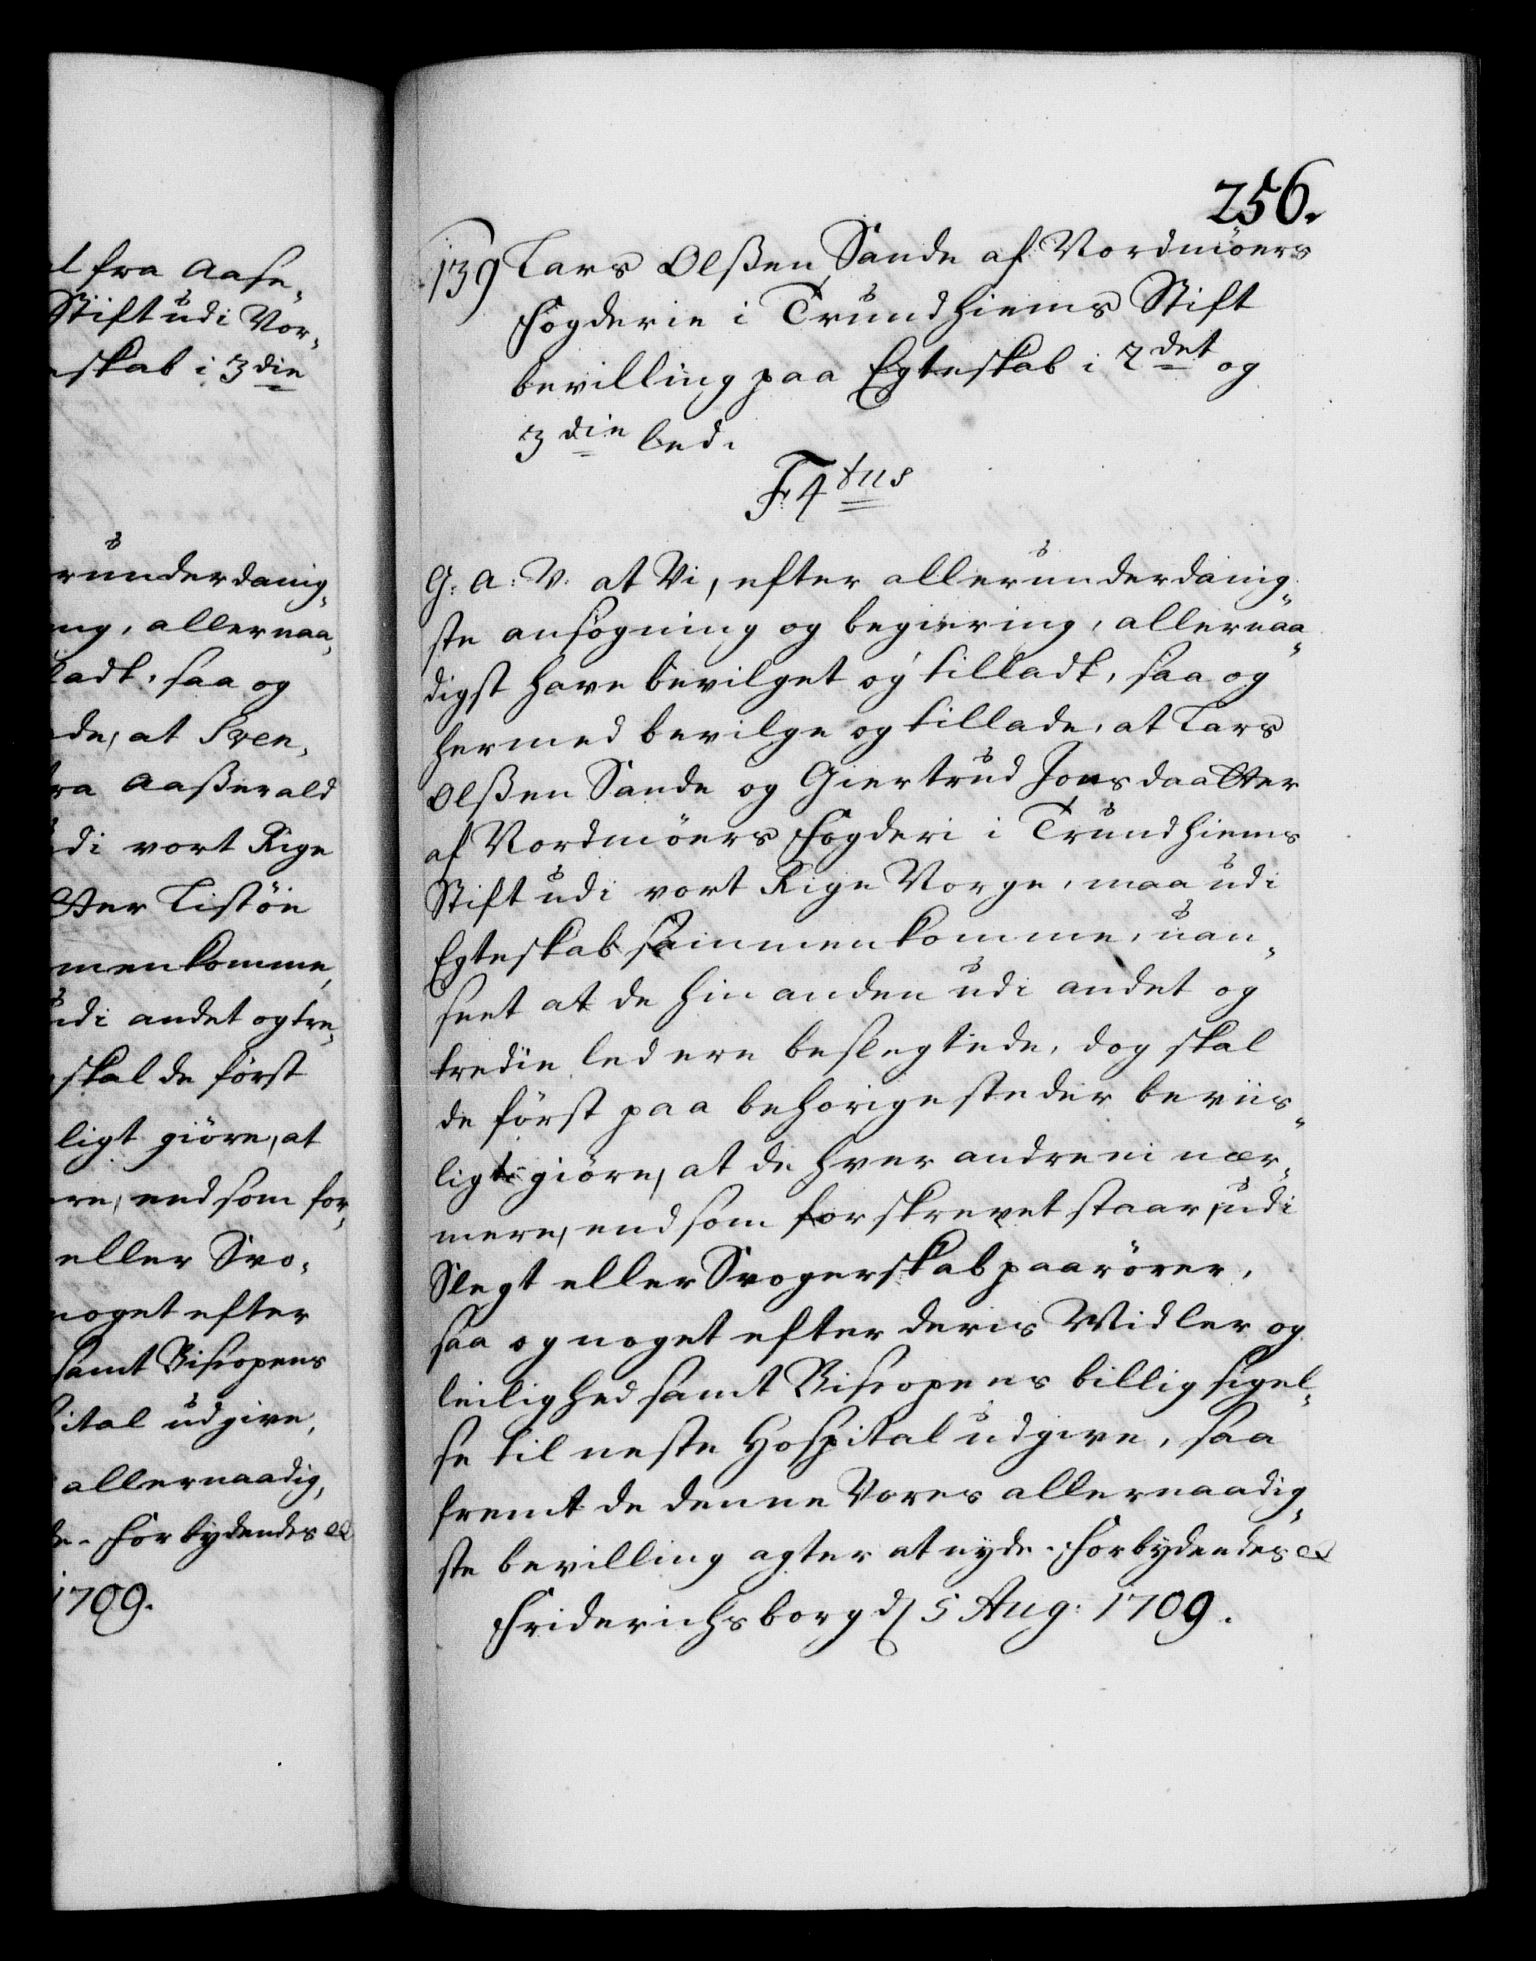 l fra Aase¸
Stift udi Nor¸
skab i 3die
runderdanig¸
ng, allernaa¸
ladt, saa og
de, at Sven¸
ra Aasserald
di vort Rige
tter Listöe
menkomme,
udi andet og tre¸
skal de först
ligt giöre, at
re, end som for¸
eller Svo¸
noget efter
samt Biscopens
ital udgive,
allernaadig¸
de. Forbydendes etc
1709.
256.
139 Lars Olssen Sande af Nordmöers
Fogderie i Trundhiems Stift
bevilling paa Egteskab i 2det og
3die led.
F4tus
G: A: V. at Vi, efter allerunderdanig¸
ste ansögning og begiering, allernaa¸
digst have bevilget og tilladt, saa og
hermed bevilge og tillade, at Lars
Olssen Sande og Giertrud Jonsdaatter
af Nordmöers Fogderi i Trundhiems
Stift udi vort Rige Norge, maa udi
Egteskab sammenkomme, uan¸
seet at de hinanden udi andet og
tredie led ere beslegtede, dog skal
de först paa behörige steder beviis¸
ligt giöre, at de hver andre ei nær¸
mere, end som forskrevet staar, udi
Slegt eller Svogerskab paarörer,
saa og noget efter deris Midler og
leilighed samt Biscopens billig sigel¸
se til neste Hospital udgive, saa
fremt de denne Vores allernaadig¸
ste bevilling agter at nyde. Forbydendes etc
Friderichsborg d 5 Aug: 1709.